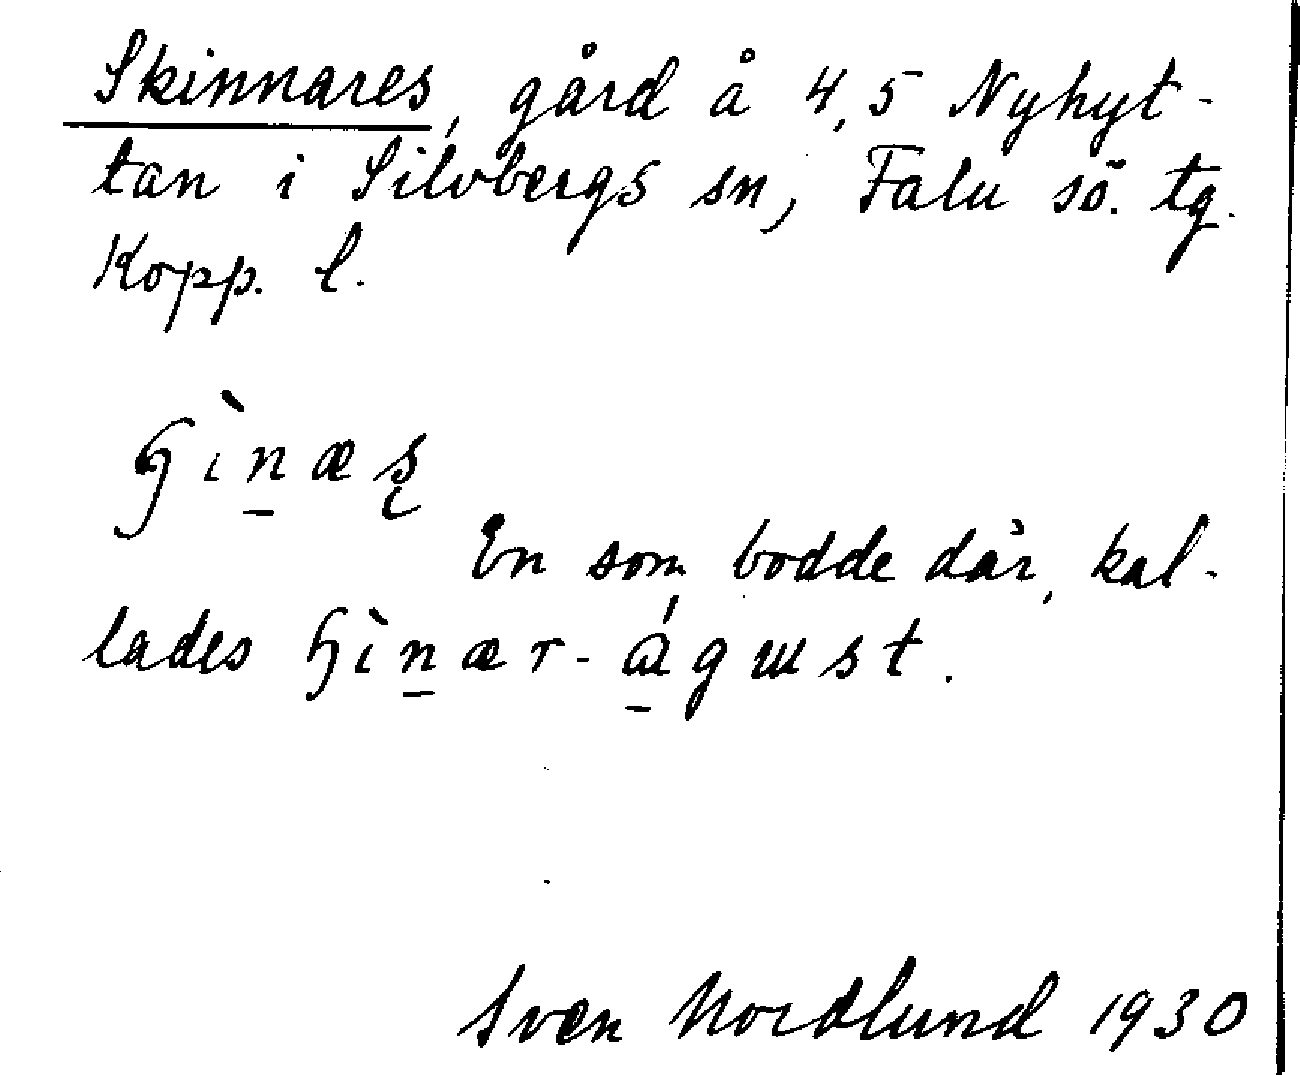 Skinnares, gård å 4,5 Nyhyt-
tan i Silvbergs sn, Falu sö. tg.
Kopp. l.
ɧìn̠æʂ
En som bodde där, kal-
lades ɧìn̠ær-á̠gɯst.
Sven Nordlund 1930